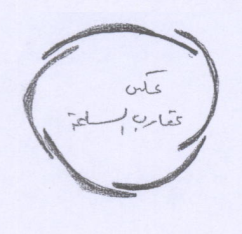 عكس
عقارب الساعة